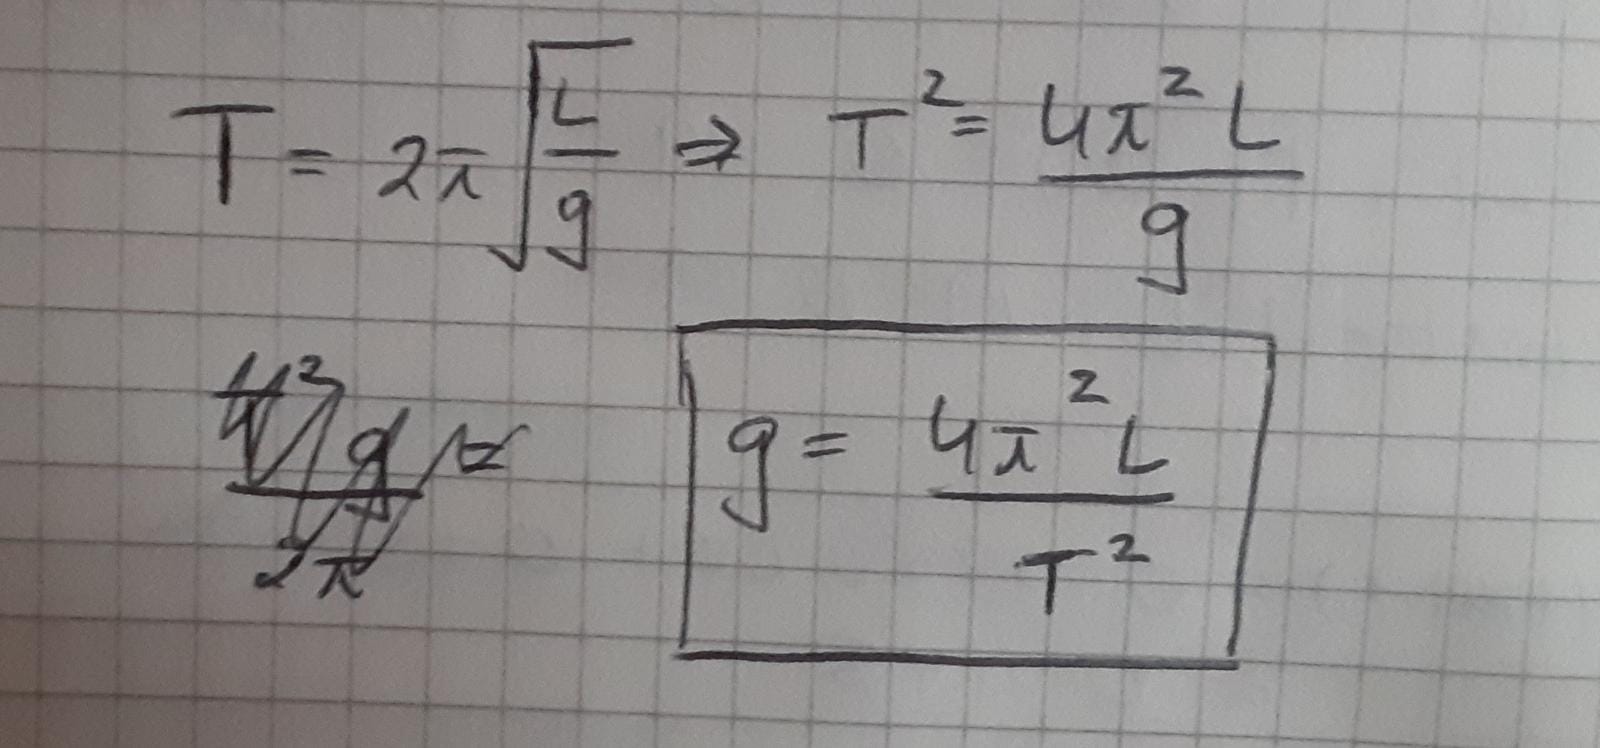 T = 2π√(L/g) ⇒ T² = 4π²L/g
g = 4π²L/T²